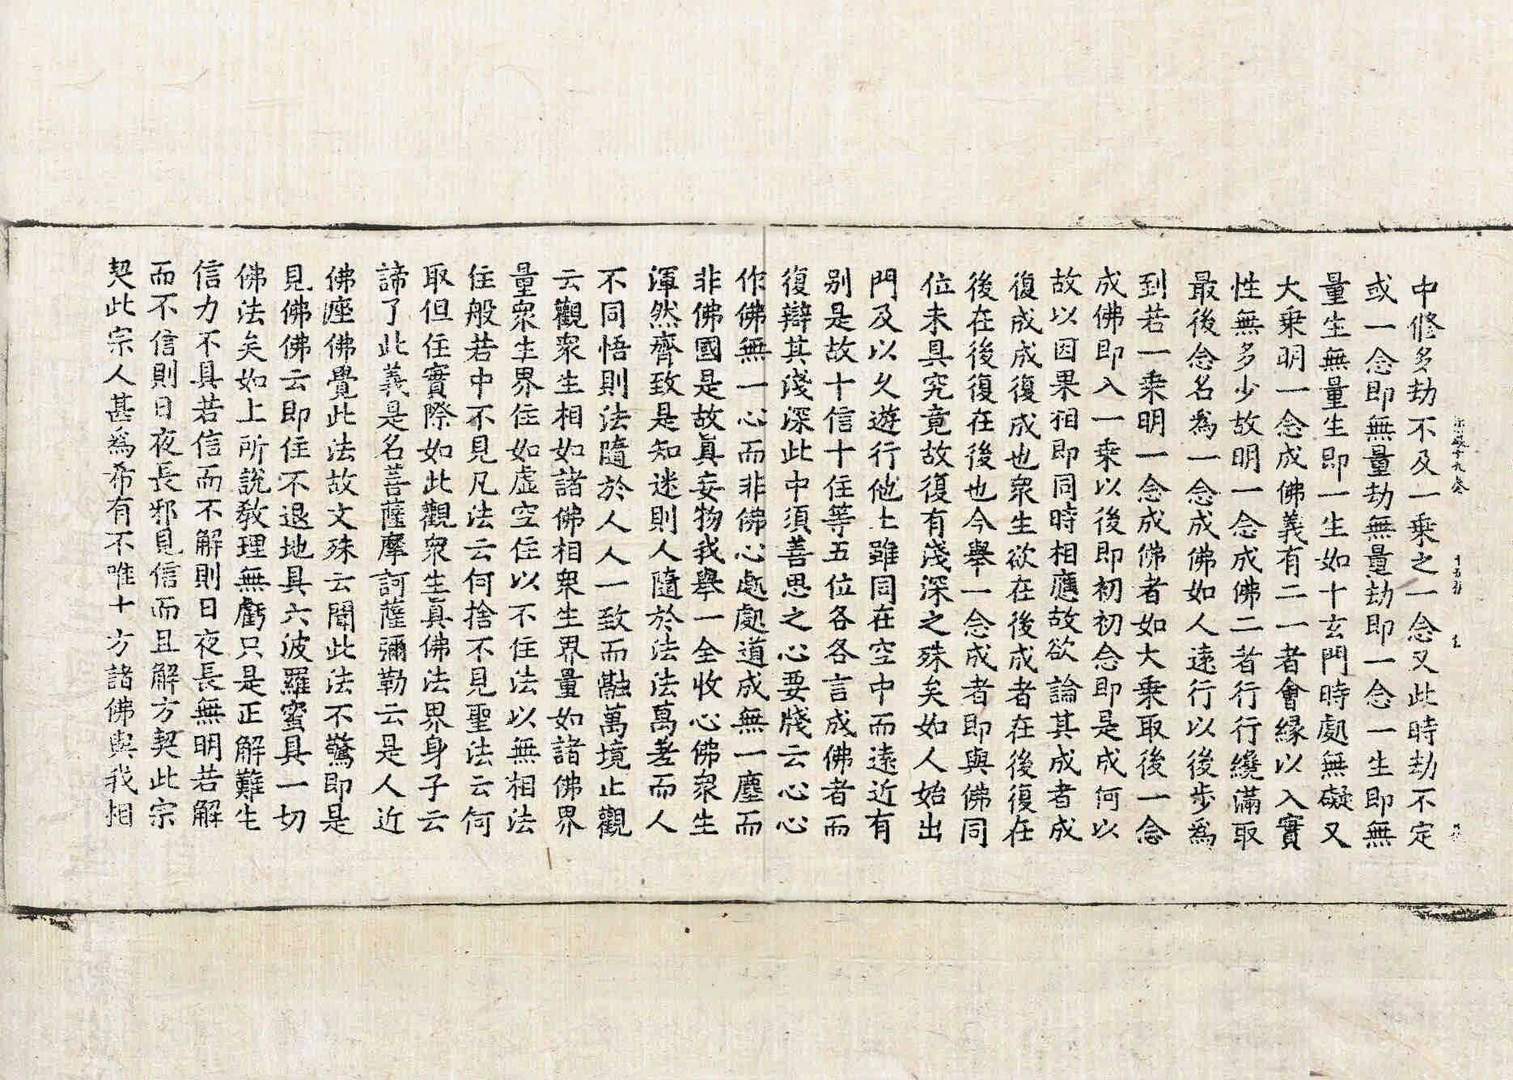 中修多劫不及一乘之一念又此時劫不定
或一念即無量劫無量劫即一念一生即無
量生無量生即一生如十玄門時處無礙又
大乘明一念成佛義有二一者會緣以入實
性無多少故明一念成佛二者行行纔滿取
最後念名為一念成佛如人遠行以後步為
到若一乘明一念成佛者如大乘取後一念
成佛即入一乘以後即初初念即是成何以
故以因果相即同時相應故欲論其成者成
復成成復成也衆生欲在後成者在後復在
後在後復在後也今舉一念成者即與佛同
位未具究竟故復有淺深之殊矣如人始出
門及以久遊行他土雖同在空中而遠近有
別是故十信十住等五位各各言成佛者而
復辯其淺深此中須善思之心要牋云心心
作佛無一心而非佛心處處道成無一塵而
非佛國是故真妄物我舉一全收心佛衆生
渾然齊致是知迷則人隨於法法萬差而人
不同悟則法隨於人人一致而融萬境止觀
云觀衆生相如諸佛相衆生界量如諸佛界
量衆生界住如虛空住以不住法以無相法
住般若中不見凡法云何捨不見聖法云何
取但住實際如此觀衆生真佛法界身子云
諦了此義是名菩薩摩訶薩彌勒云是人近
佛座佛覺此法故文殊云聞此法不驚即是
見佛佛云即住不退地具六波羅蜜具一切
佛法矣如上所說教理無虧只是正解難生
信力不具若信而不解則日夜長無明若解
而不信則日夜長邪見信而且解方契此宗
契此宗人甚為希有不唯十方諸佛與我相